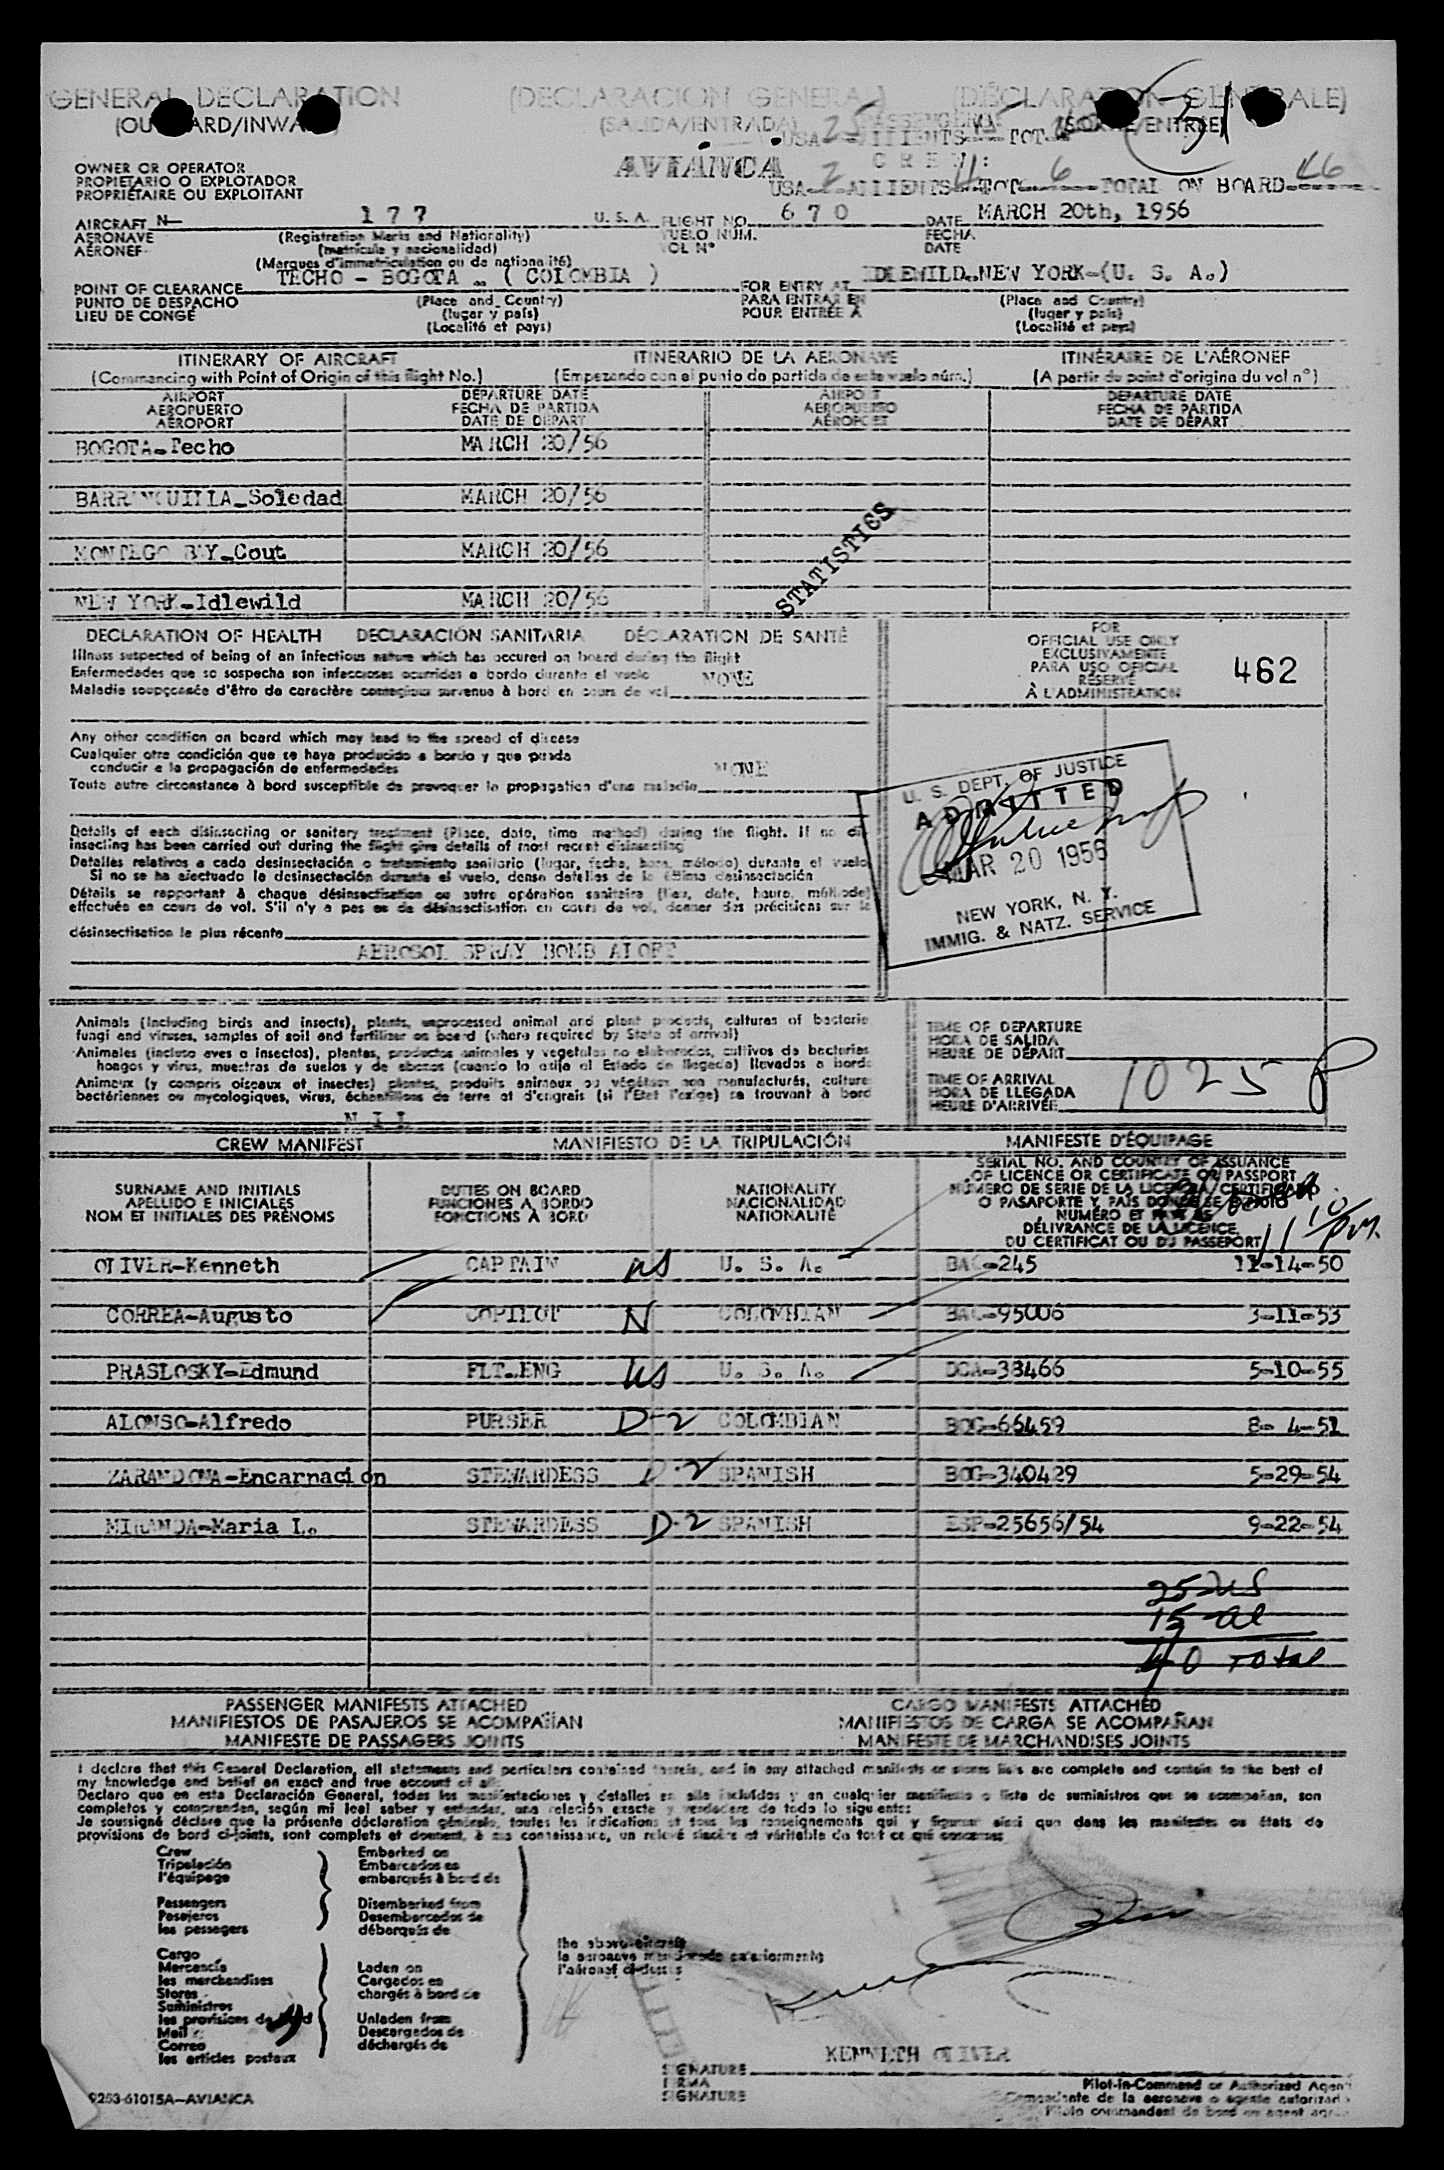 GENERAL DECLARATION (DECLARACION GENERAL) (DÉCLARATION GÉNÉRALE)
(OUTWARD/INWARD) (SALIDA/ENTRADA) (SORTIE/ENTRÉE)
31
USA 25 ALIENTS 15 TOT
OWNER OR OPERATOR
PROPIETARIO O EXPLOTADOR
PROPRIÉTAIRE OU EXPLOITANT
AVIANCA
CREW:
USA 2 ALIENTS 4 TOT 6 TOTAL ON BOARD 46
AIRCRAFT N 177 U. S. A. FLIGHT NO. 670 DATE MARCH 20th, 1956
AERONAVE (Registration Marks and Nationality) VUELO NÚM. FECHA
AÉRONEF (matrícula y nacionalidad) VOL N° DATE
(Marques d'immatriculation ou de nationalité)
POINT OF CLEARANCE TECHO - BOGOTA - ( COLOMBIA ) FOR ENTRY AT IDLEWILD-NEW YORK-(U. S. A.)
PUNTO DE DESPACHO (Place and Country) PARA ENTRAR EN (Place and Country)
LIEU DE CONGÉ (lugar y país) POUR ENTRÉE À (lugar y país)
(Localité et pays) (Localité et pays)
ITINERARY OF AIRCRAFT ITINERARIO DE LA AERONAVE ITINÉRAIRE DE L'AÉRONEF
(Commancing with Point of Origin of this flight No.) (Empezando con el punto de partida de este vuelo núm.) (A partir du point d'origine du vol n°)
AIRPORT DEPARTURE DATE AIRPORT DEPARTURE DATE
AEROPUERTO FECHA DE PARTIDA AEROPUERTO FECHA DE PARTIDA
AÉROPORT DATE DE DÉPART AÉROPORT DATE DE DÉPART
BOGOTA-Techo MARCH 20/56
BARRANQUILLA-Soledad MARCH 20/56
MONTEGO BAY-Cout MARCH 20/56
NEW YORK-Idlewild MARCH 20/56
STATISTICS
DECLARATION OF HEALTH DECLARACIÓN SANITARIA DÉCLARATION DE SANTÉ
Illness suspected of being of an infectious nature which has occured on board during the flight
Enfermedades que se sospecha son infecciosas ocurridas a bordo durante el vuelo NONE
Maladie soupçonnée d'être de caractère contagieux survenue à bord en cours de vol
FOR
OFFICIAL USE ONLY
EXCLUSIVAMENTE
PARA USO OFICIAL
RÉSERVÉ
À L'ADMINISTRATION
462
Any other condition on board which may lead to the spread of disease
Cualquier otra condición que se haya producido a bordo y que pueda
conducir a la propagación de enfermedades NONE
Toute autre circonstance à bord susceptible de provoquer la propagation d'une maladie
U. S. DEPT. OF JUSTICE
ADMITTED
MAR 20 1956
NEW YORK, N. Y.
IMMIG. & NATZ. SERVICE
Details of each disinsecting or sanitary treatment (Place, date, time method) during the flight. If no dis-
insecting has been carried out during the flight give details of most recent disinsecting
Detalles relativos a cada desinsectación o tratamiento sanitario (lugar, fecha, hora, método) durante el vuelo
Si no se ha efectuado la desinsectación durante el vuelo, dense detalles de la última desinsectación
Détails se rapportant à chaque désinsectisation ou autre opération sanitaire (lieu, date, heure, méthode)
effectuée en cours de vol. S'il n'y a pas eu de désinsectisation en cours de vol, donner des précisions sur la
désinsectisation la plus récente
AEROSOL SPRAY BOMB ALOFT
Animals (including birds and insects), plants, unprocessed animal and plant products, cultures of bacterie
fungi and viruses, samples of soil and fertilizer on board (where required by State of arrival)
Animales (incluso aves o insectos), plantas, productos animales y vegetales no elaborados, cultivos de bacterias
hongos y virus, muestras de suelos y de abonos (cuando lo exija el Estado de llegada) llevados a bordo
Animaux (y compris oiseaux et insectes) plantes, produits animaux ou végétaux non manufacturés, culture
bactériennes ou mycologiques, virus, échantillons de terre et d'engrais (si l'Etat l'exige) se trouvant à bord
NIL
TIME OF DEPARTURE
HORA DE SALIDA
HEURE DE DÉPART
TIME OF ARRIVAL
HORA DE LLEGADA
HEURE D'ARRIVÉE
1025 P
CREW MANIFEST MANIFIESTO DE LA TRIPULACIÓN MANIFESTE D'ÉQUIPAGE
SURNAME AND INITIALS DUTIES ON BOARD NATIONALITY
APELLIDO E INICIALES FUNCIONES A BORDO NACIONALIDAD
NOM ET INITIALES DES PRÉNOMS FONCTIONS À BORD NATIONALITÉ
SERIAL NO. AND COUNTRY OF ISSUANCE
OF LICENCE OR CERTIFICATE OR PASSPORT
NÚMERO DE SERIE DE LA LICENCIA CERTIFICADO
O PASAPORTE Y PAÍS DONDE SE EXPIDIÓ
NUMÉRO ET PAYS DE
DÉLIVRANCE DE LA LICENCE
DU CERTIFICAT OU DU PASSEPORT
11 10 P.M.
OLIVER-Kenneth CAPTAIN US U. S. A. BAC-245 11-14-50
CORREA-Augusto COPILOT N COLOMBIAN BAC-95006 3-11-53
PRASLOSKY-Edmund FLT.ENG US U. S. A. DCA-33466 5-10-55
ALONSO-Alfredo PURSER D-2 COLOMBIAN BOG-66459 8- 4-51
ZARANDONA-Encarnacion STEWARDESS D-2 SPANISH BOG-340429 5-29-54
MIRANDA-Maria L. STEWARDESS D-2 SPANISH ESP-25656/54 9-22-54
25 US
15 al
40 Total
PASSENGER MANIFESTS ATTACHED CARGO MANIFESTS ATTACHED
MANIFIESTOS DE PASAJEROS SE ACOMPAÑAN MANIFIESTOS DE CARGA SE ACOMPAÑAN
MANIFESTE DE PASSAGERS JOINTS MANIFESTE DE MARCHANDISES JOINTS
I declare that this General Declaration, all statements and particulars contained therein, and in any attached manifests or stores lists are complete and contain to the best of
my knowledge and belief an exact and true account of all
Declaro que en esta Declaración General, todas las manifestaciones y detalles en ella incluídos y en cualquier manifiesto o lista de suministros que se acompañan, son
completos y comprenden, según mi leal saber y entender, una relación exacta y verdadera de todo lo siguiente:
Je soussigné déclare que la présente déclaration générale, toutes les indications et tous les renseignements qui y figurent ainsi que dans les manifestes ou états de
provisions de bord ci-joints, sont complets et donnent, à ma connaissance, un relevé sincère et véritable de tout ce qui concerne
Crew Embarked on
Tripulación Embarcados en
l'équipage embarqués à bord de
Passengers Disembarked from
Pasajeros Desembarcados de
les passagers débarqués de
the above-aircraft
la aeronave mencionada anteriormente
l'aéronef ci-dessus
Cargo Laden on
Mercancía Cargados en
les marchandises chargés à bord de
Stores
Suministros
les provisions de bord Unladen from
Mail Descargados de
Correo déchargés de
les articles postaux
KENNETH OLIVER
SIGNATURE
FIRMA
SIGNATURE
Pilot-in-Command or Authorized Agent
Comandante de la aeronave o agente autorizado
Pilote commandant de bord ou agent
9253-61015A-AVIANCA